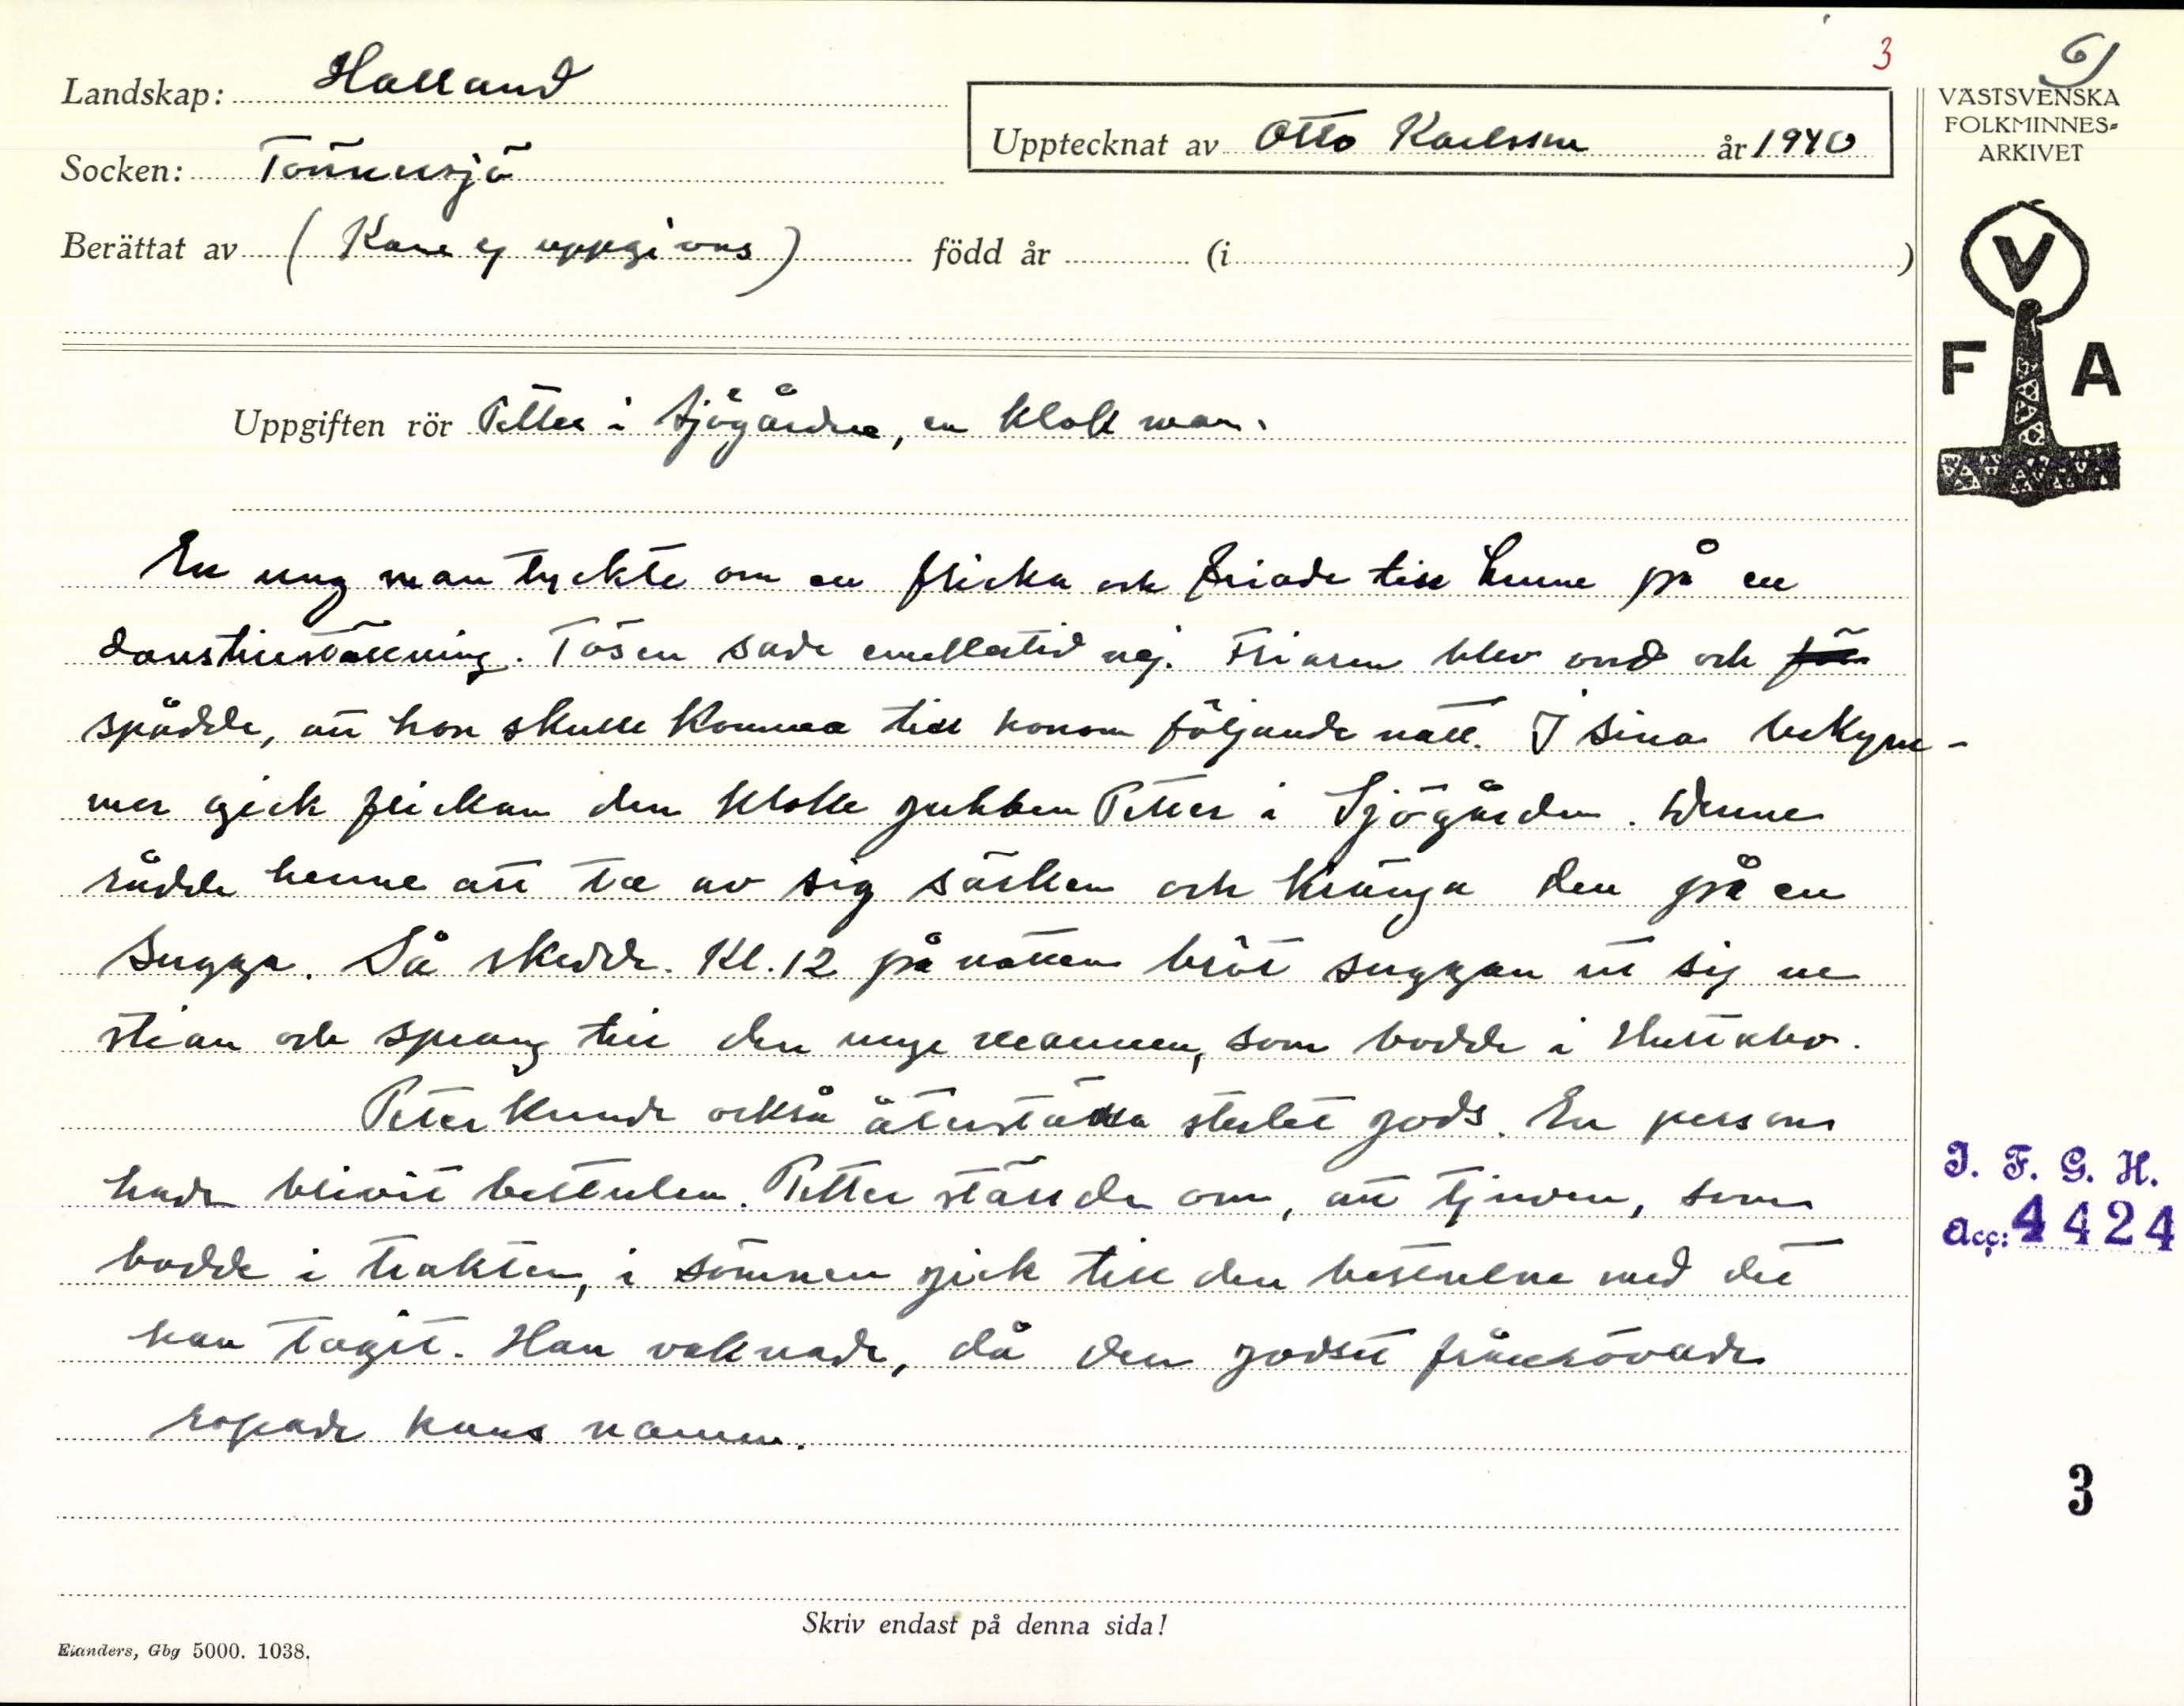 3
Landskap: Halland
Socken: Tönnersjö
Upptecknat av Otto Karlsson år 1940
Berättat av (Kan ej uppgivas) född år (i )
VÄSTSVENSKA
FOLKMINNES=
ARKIVET
V
F A
Uppgiften rör Petter i Sjögården, en klok man.
En ung man tyckte om en flicka och friade till henne på en
danstillställning. Tösen sade emellertid nej. Friaren blev ond och
spådde, att hon skulle komma till honom följande natt. I sina bekym-
mer gick flickan den kloke gubben Petter i Sjögården. Denne
rådde henne att ta av sig särken och kränga den på en
sugga. Så skedde. Kl. 12 på natten bröt suggan ut sig ur
stian och sprang till den unge mannen, som bodde i
Petter kunde också återställa stulet gods. En person
hade blivit bestulen. Petter ställde om, att tjuven, som
bodde i trakten, i sömnen gick till den bestulne med det
han tagit. Han vaknade, då den godset frånrövade
ropade hans namn.
I. F. G. H.
Acc: 4424
3
Skriv endast på denna sida!
Elanders, Gbg 5000. 1038.